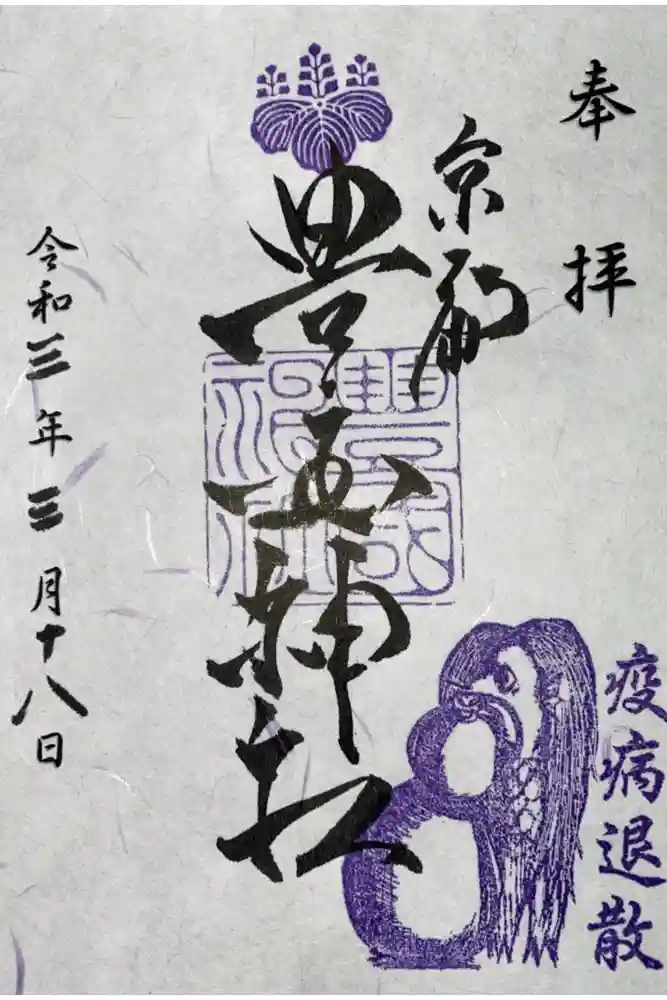 奉拝
京都
豊国神社
豊國
神社
令和三年三月十八日
疫病退散